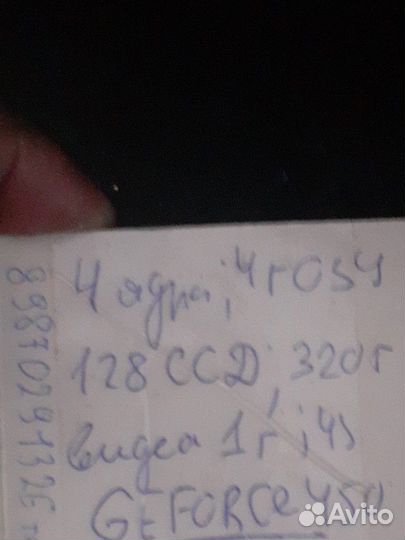 4 ядра, 4 г ОЗУ
128 ССД, 320г
видеа 1г
GEFORCE 450
89870294326
Avito